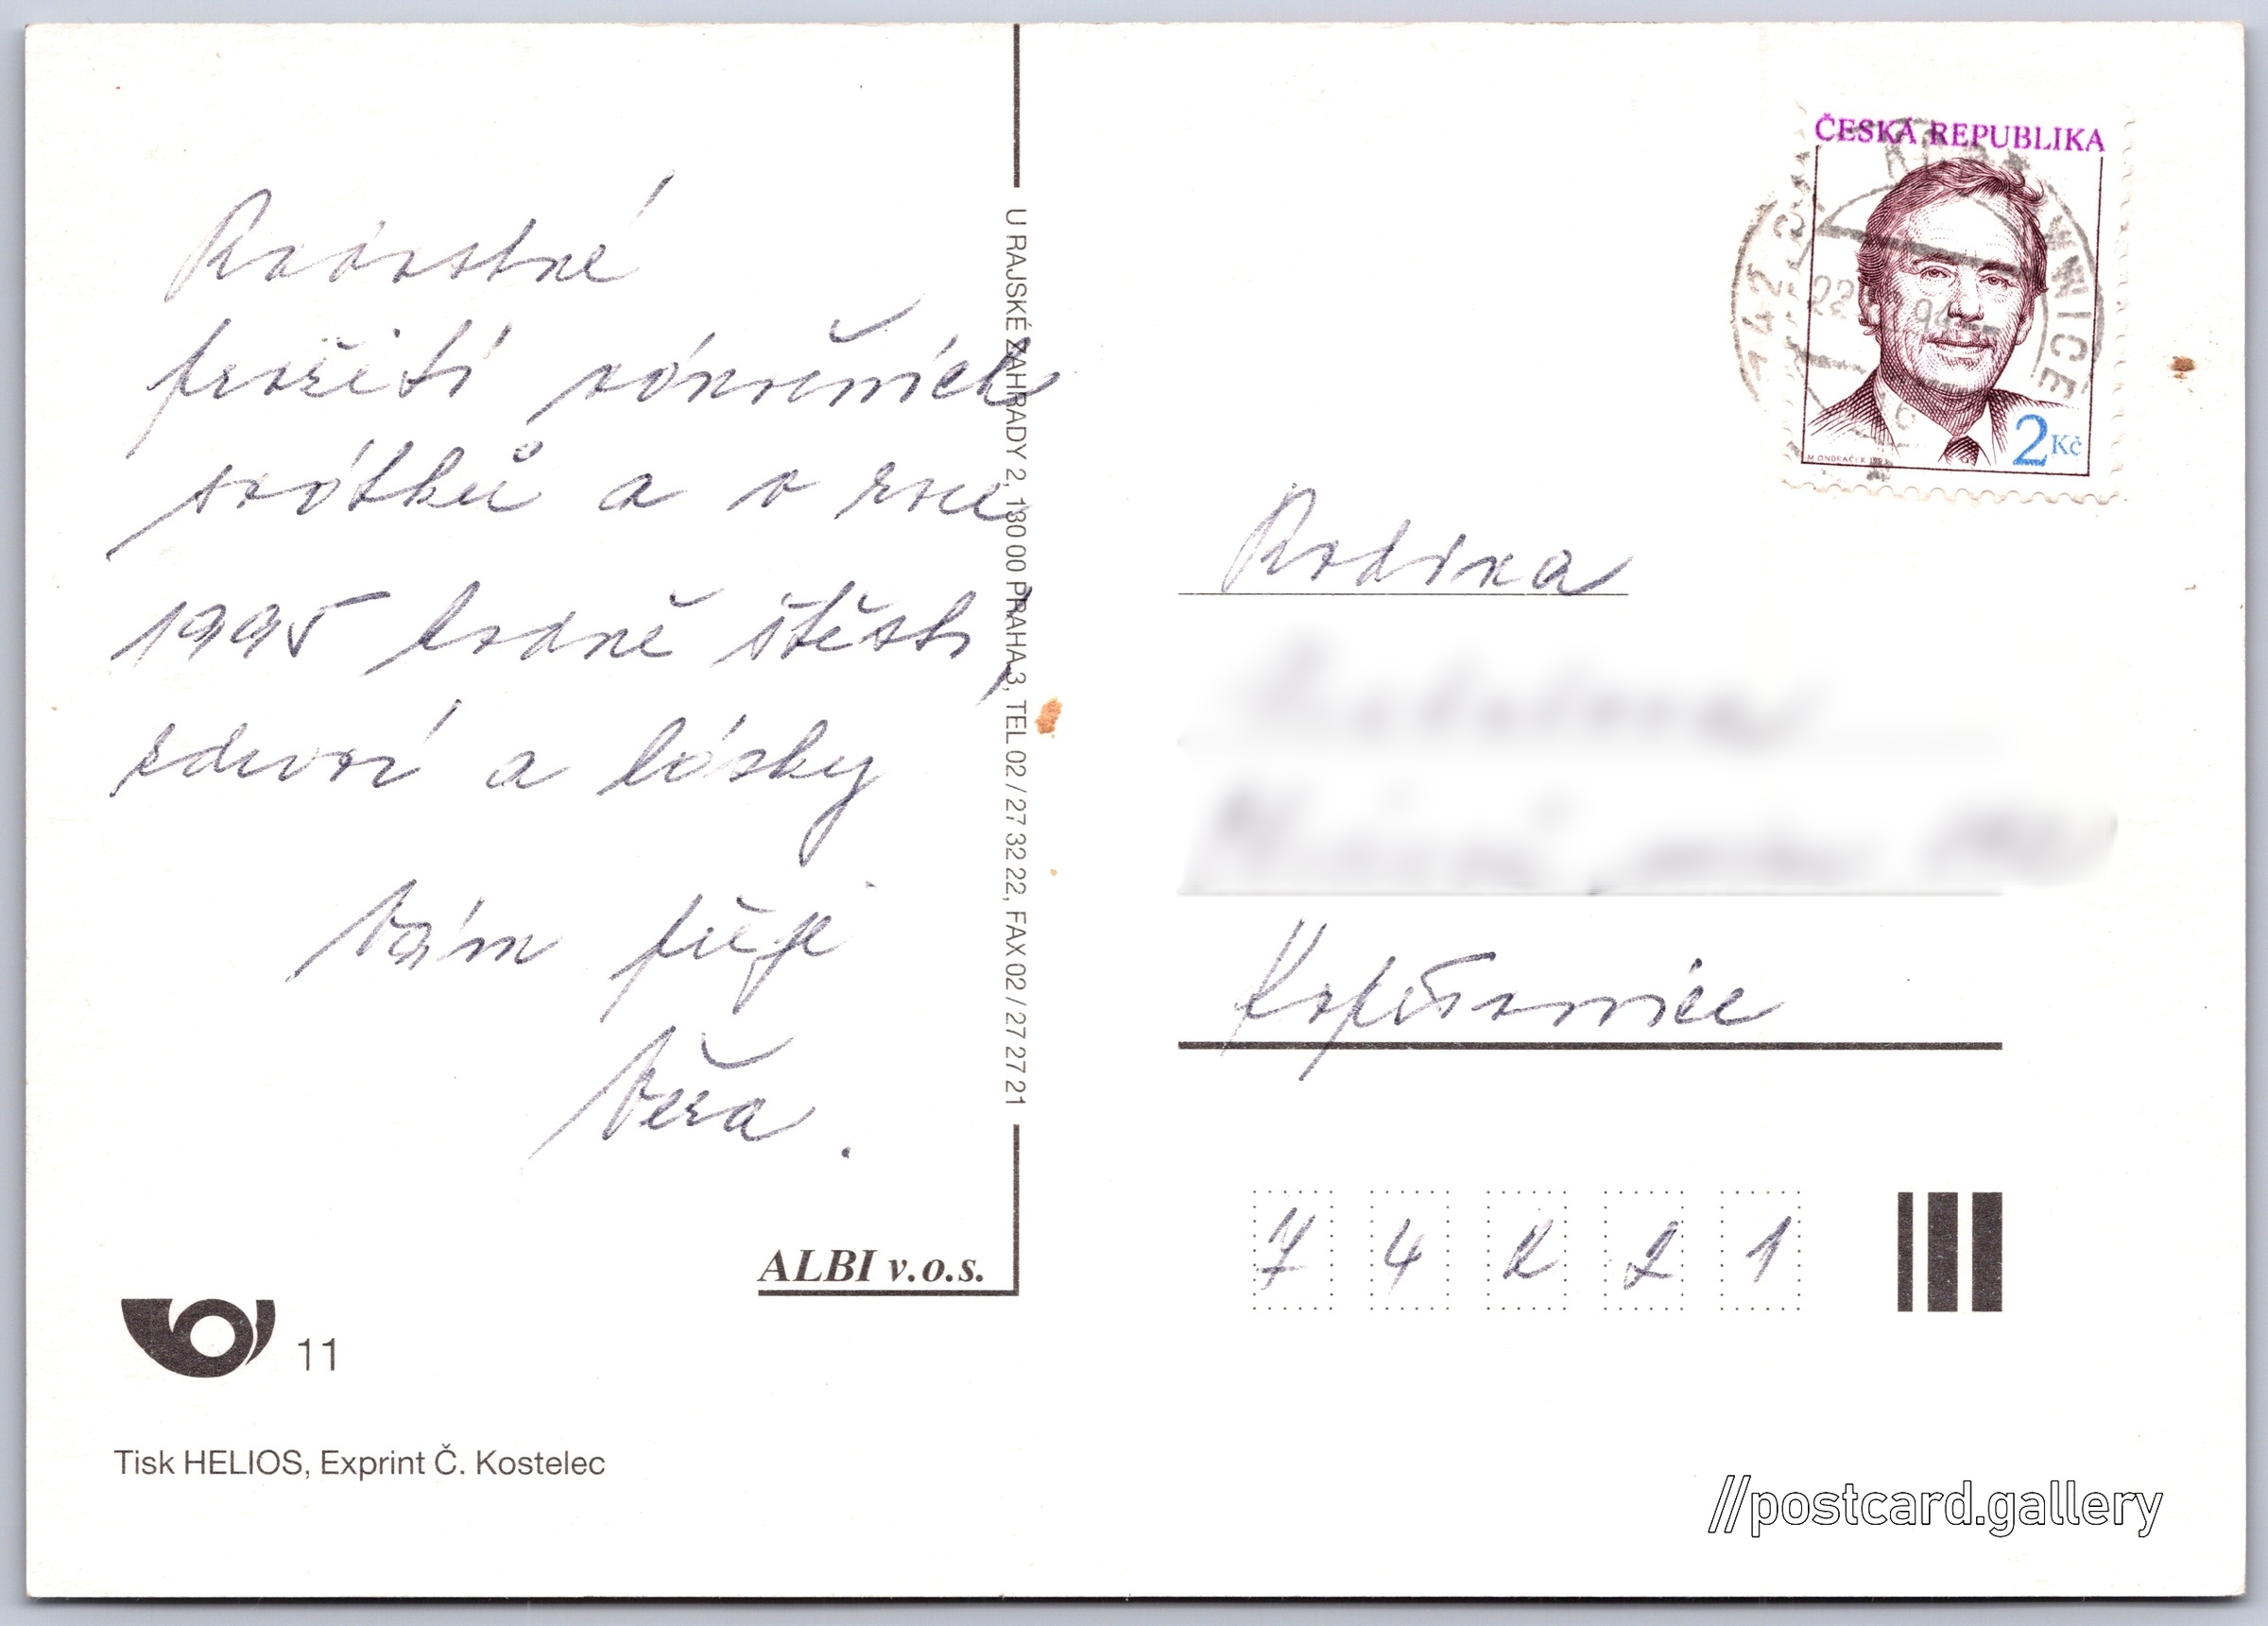 Radostné
prožití vánočních
svátků a v roce
1995 hodně štěstí,
zdraví a lásky
Vám přeje
Věra.
U RAJSKÉ ZAHRADY 2, 130 00 PRAHA 3, TEL 02 / 27 32 22, FAX 02 / 27 27 21
ALBI v.o.s.
11
Tisk HELIOS, Exprint Č. Kostelec
ČESKÁ REPUBLIKA
2 Kč
M. ONDRÁČEK 1993
742 21
Rodina
Kopřivnice
74221
//postcard.gallery